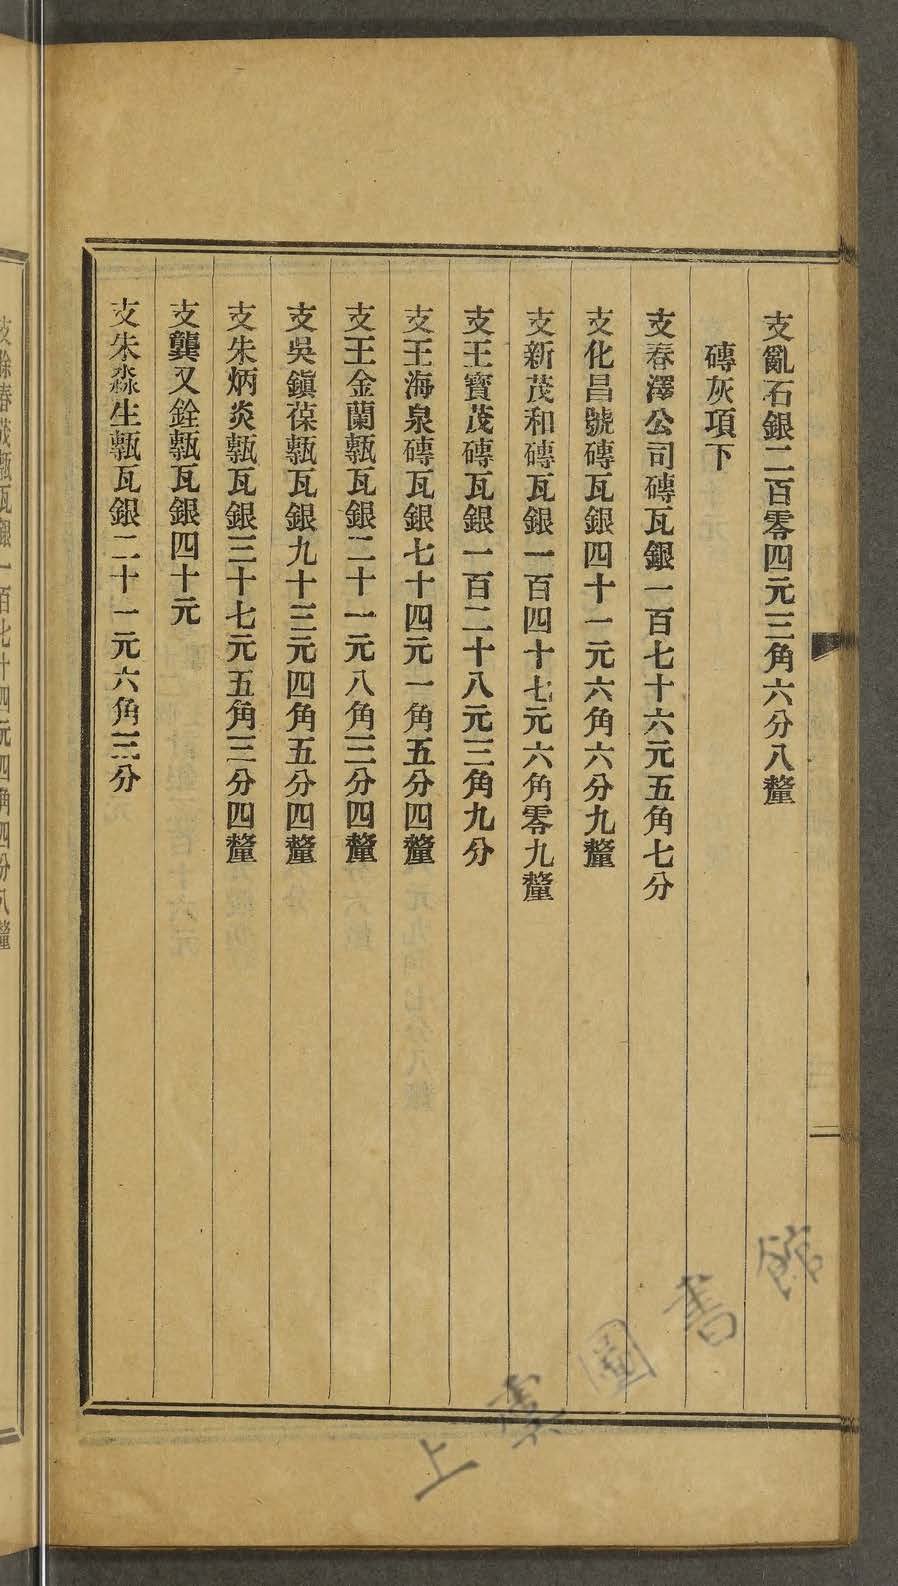 支亂石銀二百零四元三角六分八釐
磚灰項下
支春澤公司磚瓦銀一百七十六元五角七分
支化昌號磚瓦銀四十一元六角六分九釐
支新茂和磚瓦銀一百四十七元六角零九釐
支王寶茂磚瓦銀一百二十八元三角九分
支王海泉磚瓦銀七十四元一角五分四釐
支王金蘭甎瓦銀二十一元八角三分四釐
支吳鎭葆甎瓦銀九十三元四角五分四釐
支朱炳炎甎瓦銀三十七元五角三分四釐
支龔又銓甎瓦銀四十元
支朱淼生甎瓦銀二十一元六角三分
支餘春茂甎瓦銀一百七十四元四角四分八釐
上虞圖書館